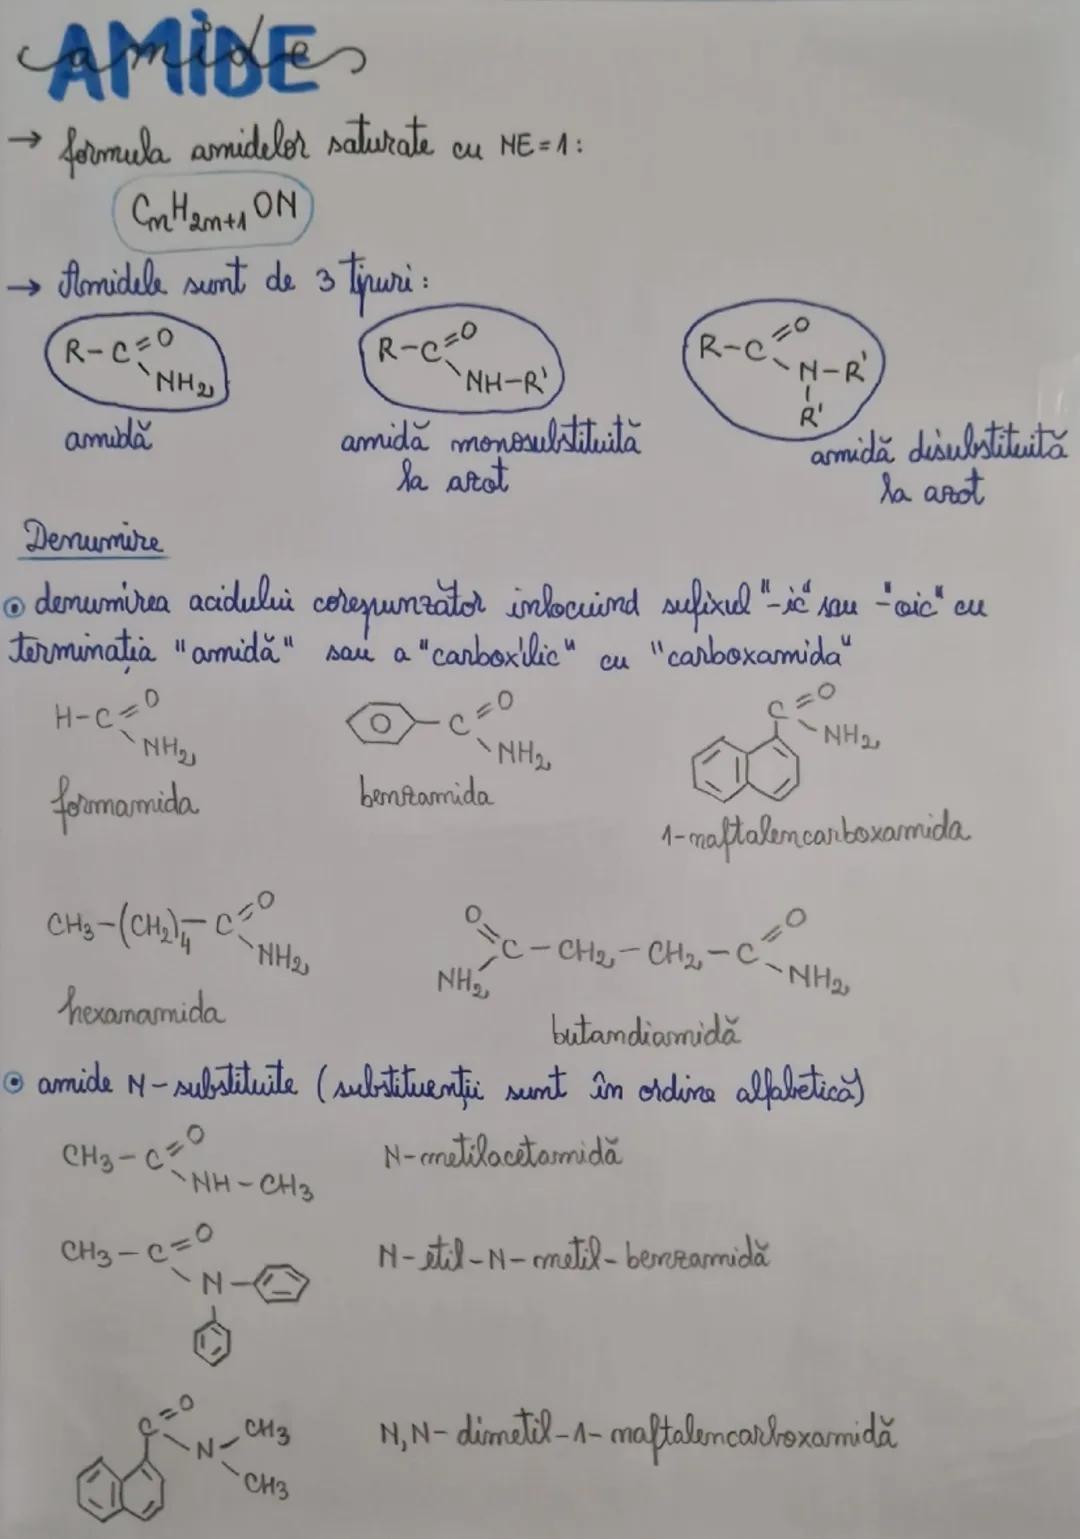 AMIDE
amides
→ formula amidelor saturate cu NE=1:
CnH2n+1ON
→ Amidele sunt de 3 tipuri:
R-C=O
NH2
R-C=O
NH-R'
R-C=O
N-R'
R'
amidă
amidă monosubstituită
la azot
amidă disubstituită
la azot
Denumire
denumirea acidului corespunzător înlocuind sufixul "-ic" sau -"oic" cu
terminația "amidă" sau a "carboxilic" cu "carboxamida"
H-C=O
NH2
C=O
NH2
C=O
NH2
formamida
benzamida
1-naftalencarboxamida
CH3-(CH2)4-C=O
NH2
O=C-CH2-CH2-C=O
NH2
NH2
hexanamida
butandiamidă
amide N-substituite (substituenții sunt în ordine alfabetică)
CH3-C=O
NH-CH3
N-metilacetamidă
CH3-C=O
N-
N-etil-N-metil-benzamidă
C=O
N-CH3
CH3
N,N-dimetil-1-naftalencarboxamidă